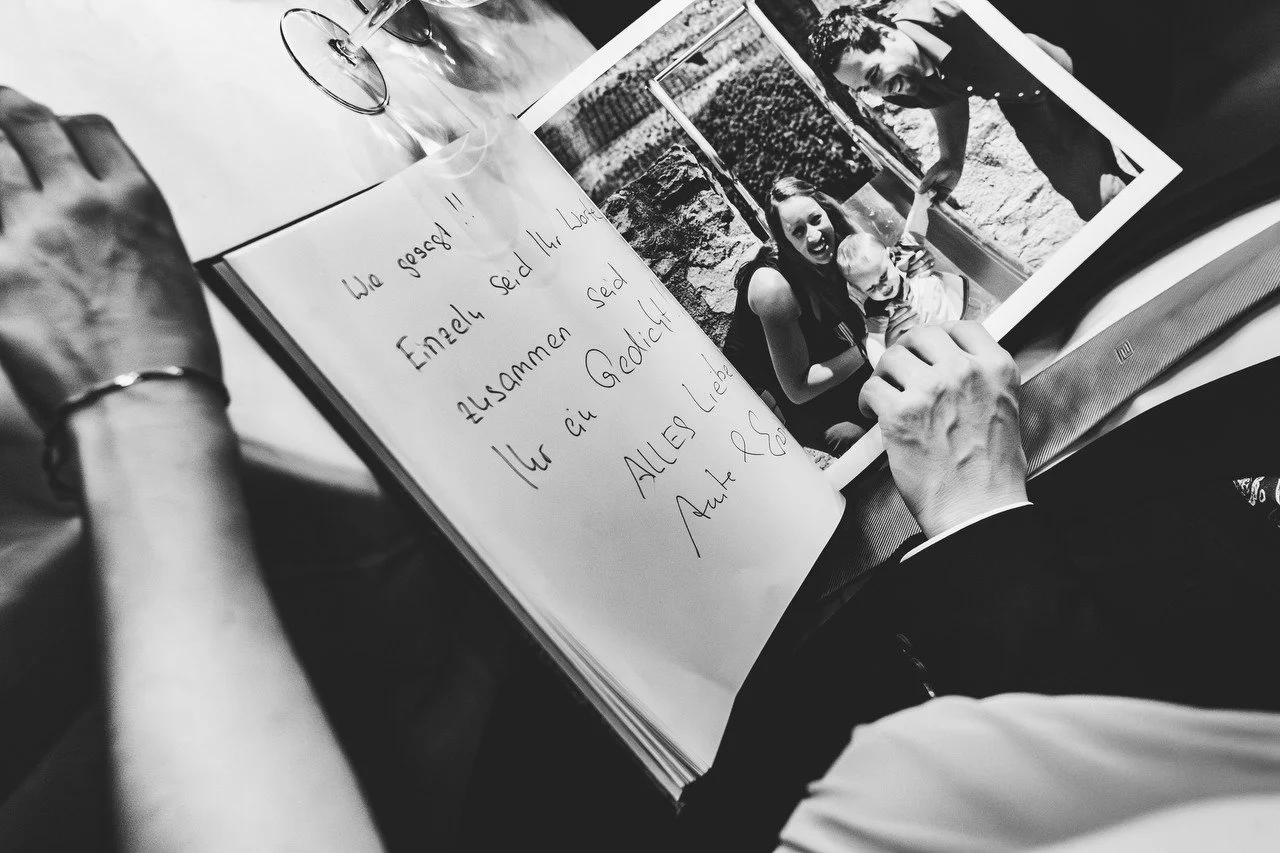 Wie gesagt !!
Einzeln seid Ihr Worte
zusammen seid
Ihr ein Gedicht
ALLES Liebe
&